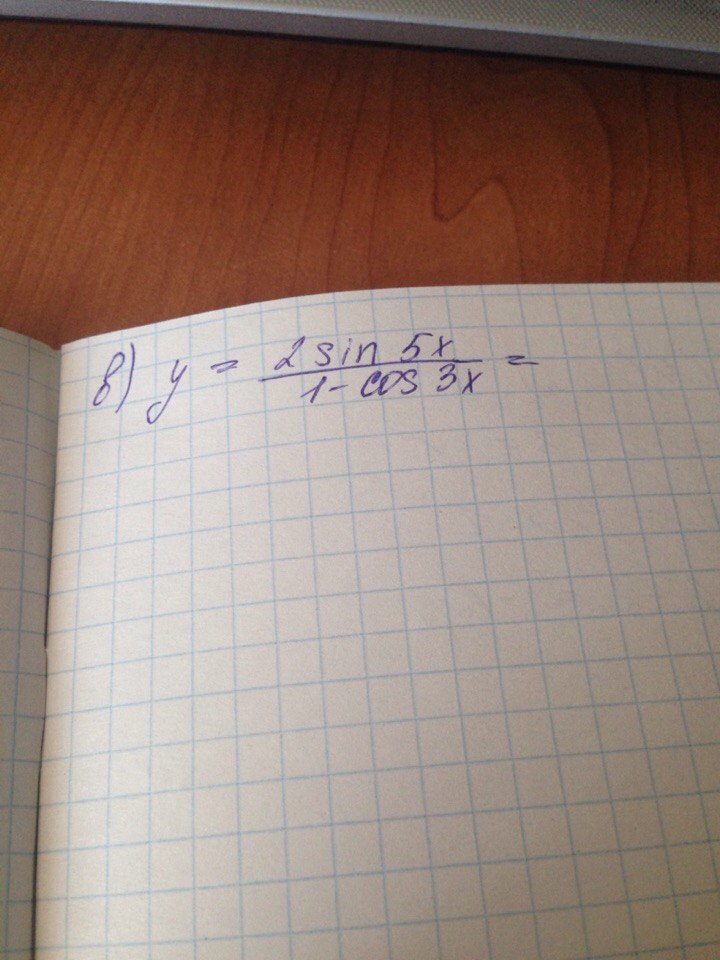 в) y = 2 sin 5x / 1 - cos 3x =